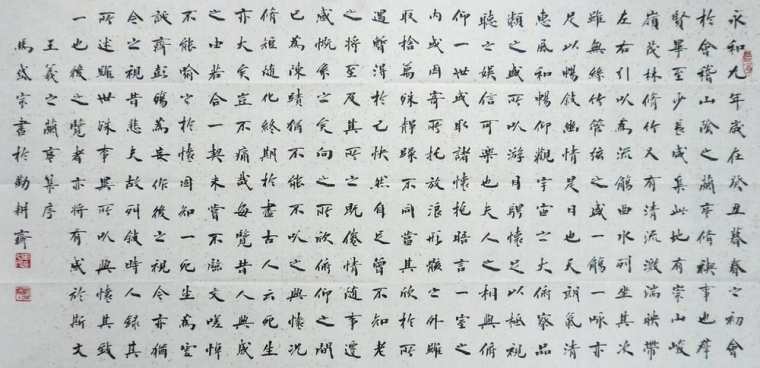 永和九年歲在癸丑暮春之初會
於會稽山陰之蘭亭脩禊事也羣
賢畢至少長咸集此地有崇山峻
嶺茂林脩竹又有清流激湍映帶
左右引以為流觴曲水列坐其次
雖無絲竹管弦之盛一觴一詠亦
足以暢敘幽情是日也天朗氣清
惠風和暢仰觀宇宙之大俯察品
類之盛所以游目騁懷足以極視
聽之娛信可樂也夫人之相與俯
仰一世或取諸懷抱晤言一室之
內或因寄所托放浪形骸之外雖
取捨萬殊靜躁不同當其欣於所
遇暫得於己快然自足曾不知老
之將至及其所之既倦情隨事遷
感慨係之矣向之所欣俯仰之間
已為陳蹟猶不能不以之興懷況
脩短隨化終期於盡古人云死生
亦大矣豈不痛哉每覽昔人興感
之由若合一契未嘗不臨文嗟悼
不能喻之於懷固知一死生為虛
誕齊彭殤為妄作後之視今亦猶
今之視昔悲夫故列敘時人錄其
所述雖世殊事異所以興懷其致
一也後之覽者亦將有感於斯文
王羲之蘭亭集序
馬盛宗書於勤耕齋